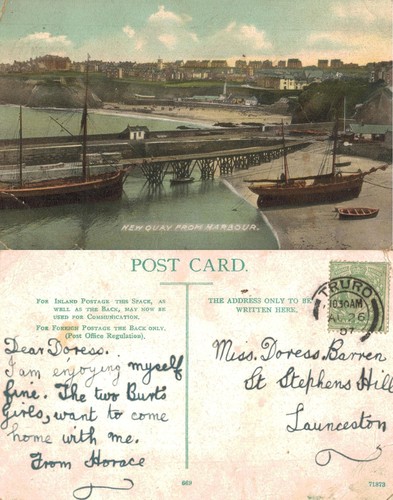 NEW QUAY FROM HARBOUR.
POST CARD.
FOR INLAND POSTAGE THIS SPACE, AS
WELL AS THE BACK, MAY NOW BE
USED FOR COMMUNICATION.
FOR FOREIGN POSTAGE THE BACK ONLY.
(Post Office Regulation).
THE ADDRESS ONLY TO BE
WRITTEN HERE.
TRURO
1030AM
AU 26
07
Dear Doress.
I am enjoying myself
fine. The two Burts
Girls, want to come
home with me.
From Horace
Miss. Doress. Barren
St Stephens Hill
Launceston
869
71873